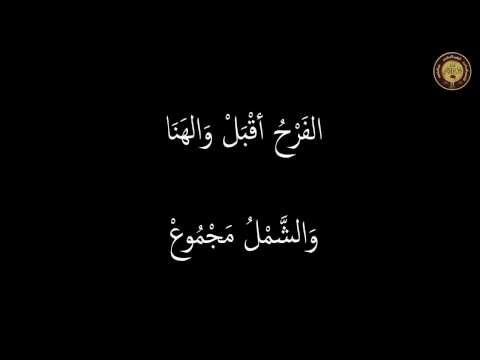 الفَرْحُ أقْبَلْ وَالهَنَا
وَالشَّمْلُ مَجْمُوعْ